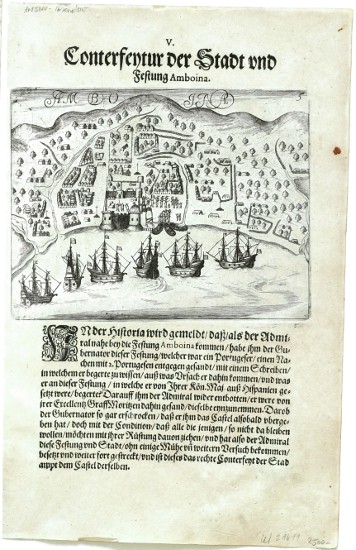 V.
Conterfeytur der Stadt vnd
Festung Amboina.
AMBOINA
5
IN der Historia wird gemeldt/ daß/ als der Admi-
ral nahe bey die Festung Amboina kommen/ habe ihm der Gu-
bernator dieser Festung/ welcher war ein Portugeser/ einen Na-
chen mit 2. Portugesen entgegen gesandt/ mit einem Schreiben/
in welchem er begerte zu wissen/ auß was Vrsach er dahin kommen/ vnd was
er an dieser Festung/ in welche er von Ihrer Kön. May. auß Hispanien ge-
setzt were/ begerte? Darauff ihm der Admiral wider entbotten/ er were von
ihrer Excellentz Graff Moritzen dahin gesand/ dieselbe einzunemmen. Darob
der Gubernator so gar erschrocken/ daß er ihm das Castel alsobald vberge-
ben hat/ doch mit der Condition/ daß alle die jenigen/ so nicht da bleiben
wollen/ möchten mit ihrer Rüstung dauon ziehen/ vnd hat also der Admiral
diese Festung vnd Stadt/ ohn einige Mühe vñ weitern Versuch bekommen/
besetzt vnd weiter fort gestreckt/ vnd ist dieses das rechte Conterfeyt der Stad
sampt dem Castel derselben.